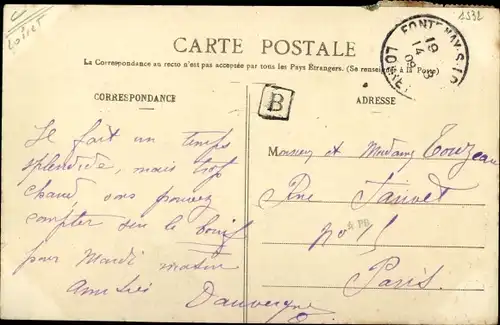 Loiret
1532
CARTE POSTALE
La Correspondance au recto n'est pas acceptée par tous les Pays Étrangers. (Se renseigner à la Poste)
FONTENAY-S-LOING
19
14 -8
09
LOIRET
B
CORRESPONDANCE
Il fait un temps
splendide, mais trop
chaud, vous pouvez
compter sur le
pour Mardi matin
Amitiés Dauvergne
ADRESSE
Monsieur et Madame Touzeau
Rue Jauvet
No 15
PB
Paris